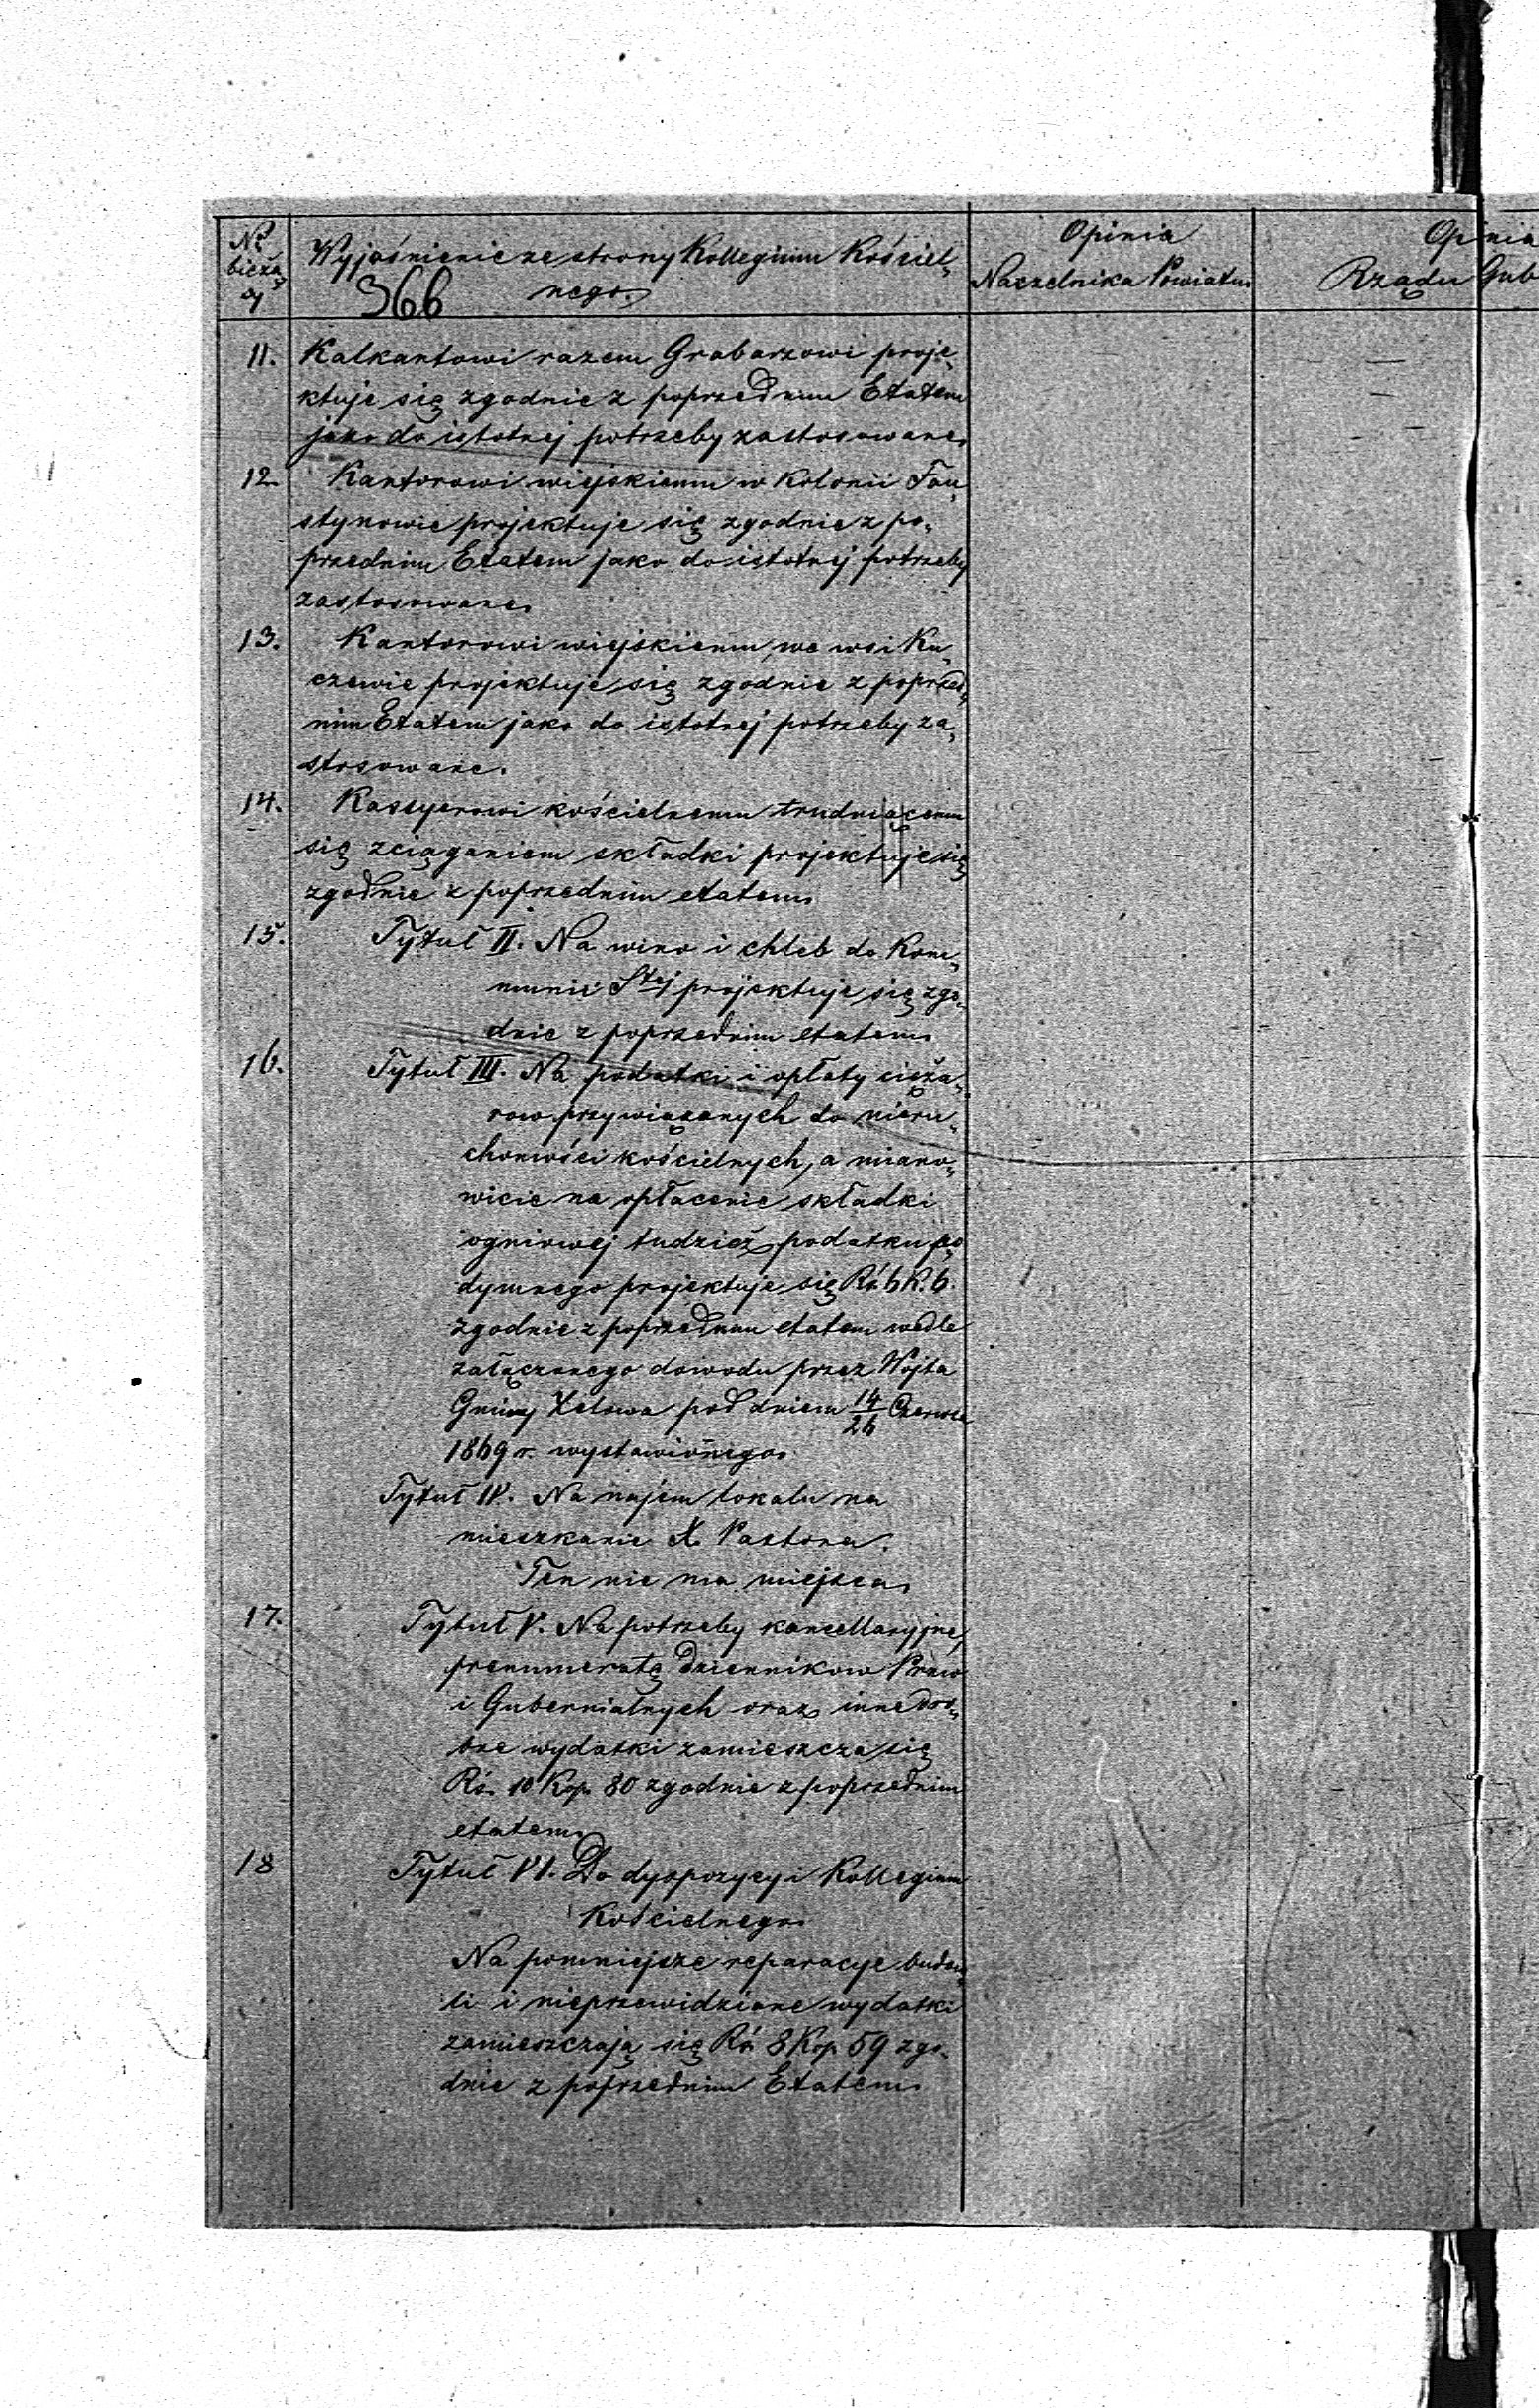 Nº
bieżą
cy
Wyjaśnienie ze strony Kollegium Kościel„
nego.
366
Opinia
Naczelnika Powiatu
Opinia
Rządu Gub
11. Kalkantowi razem Grabarzowi proje„
ktuje się zgodnie z poprzednim Etatem
jako do istotnej potrzeby zastosowane.
12. Kantorowi wiejskiemu w Kolonii Fau„
stynowie projektuje się zgodnie z po„
przednim Etatem jako do istotnej potrzeby
zastosowane.
13. Kantorowi wiejskiemu we wsi Ku„
czewie projektuje się zgodnie z poprzed„
nim Etatem jako do istotnej potrzeby za„
stosowane.
14. Kassyerowi kościelnemu trudniącemu
się zciąganiem składki projektuje się
zgodnie z poprzednim etatem.
15. Tytuł II. Na wino i chleb do Kom„
munii Stej projektuje się zgo„
dnie z poprzednim etatem.
16. Tytuł III. Na podatki i opłaty cięża„
row przywiązanych do nieru„
chomości kościelnych, a miano„
wicie na opłacenie składki
ogniowej tudzież podatku po„
dymnego projektuje się Rś. 6 K. 6.
zgodnie z poprzednim etatem wedle
załączonego dowodu przez Wojta
Gminy Zelowa pod dniem 14/26 Czerwca
1869 r. wystawionego.
Tytuł IV. Na najem lokalu na
mieszkanie X. Pastora.
Ten nie ma miejsca.
17. Tytuł V. Na potrzeby kancellaryjne,
prenumeratę Dziennikow Praw
i Gubernialnych oraz inne dro„
bne wydatki zamieszcza się
Rś. 10 Kop. 80 zgodnie z poprzednim
etatem.
18 Tytuł VI. Do dyspozycyi Kollegium
Kościelnego.
Na pomniejsze reparacye budow„
li i nieprzewidziane wydatki
zamieszczają się Rś. 8 Kop. 59 zgo„
dnie z poprzednim Etatem.